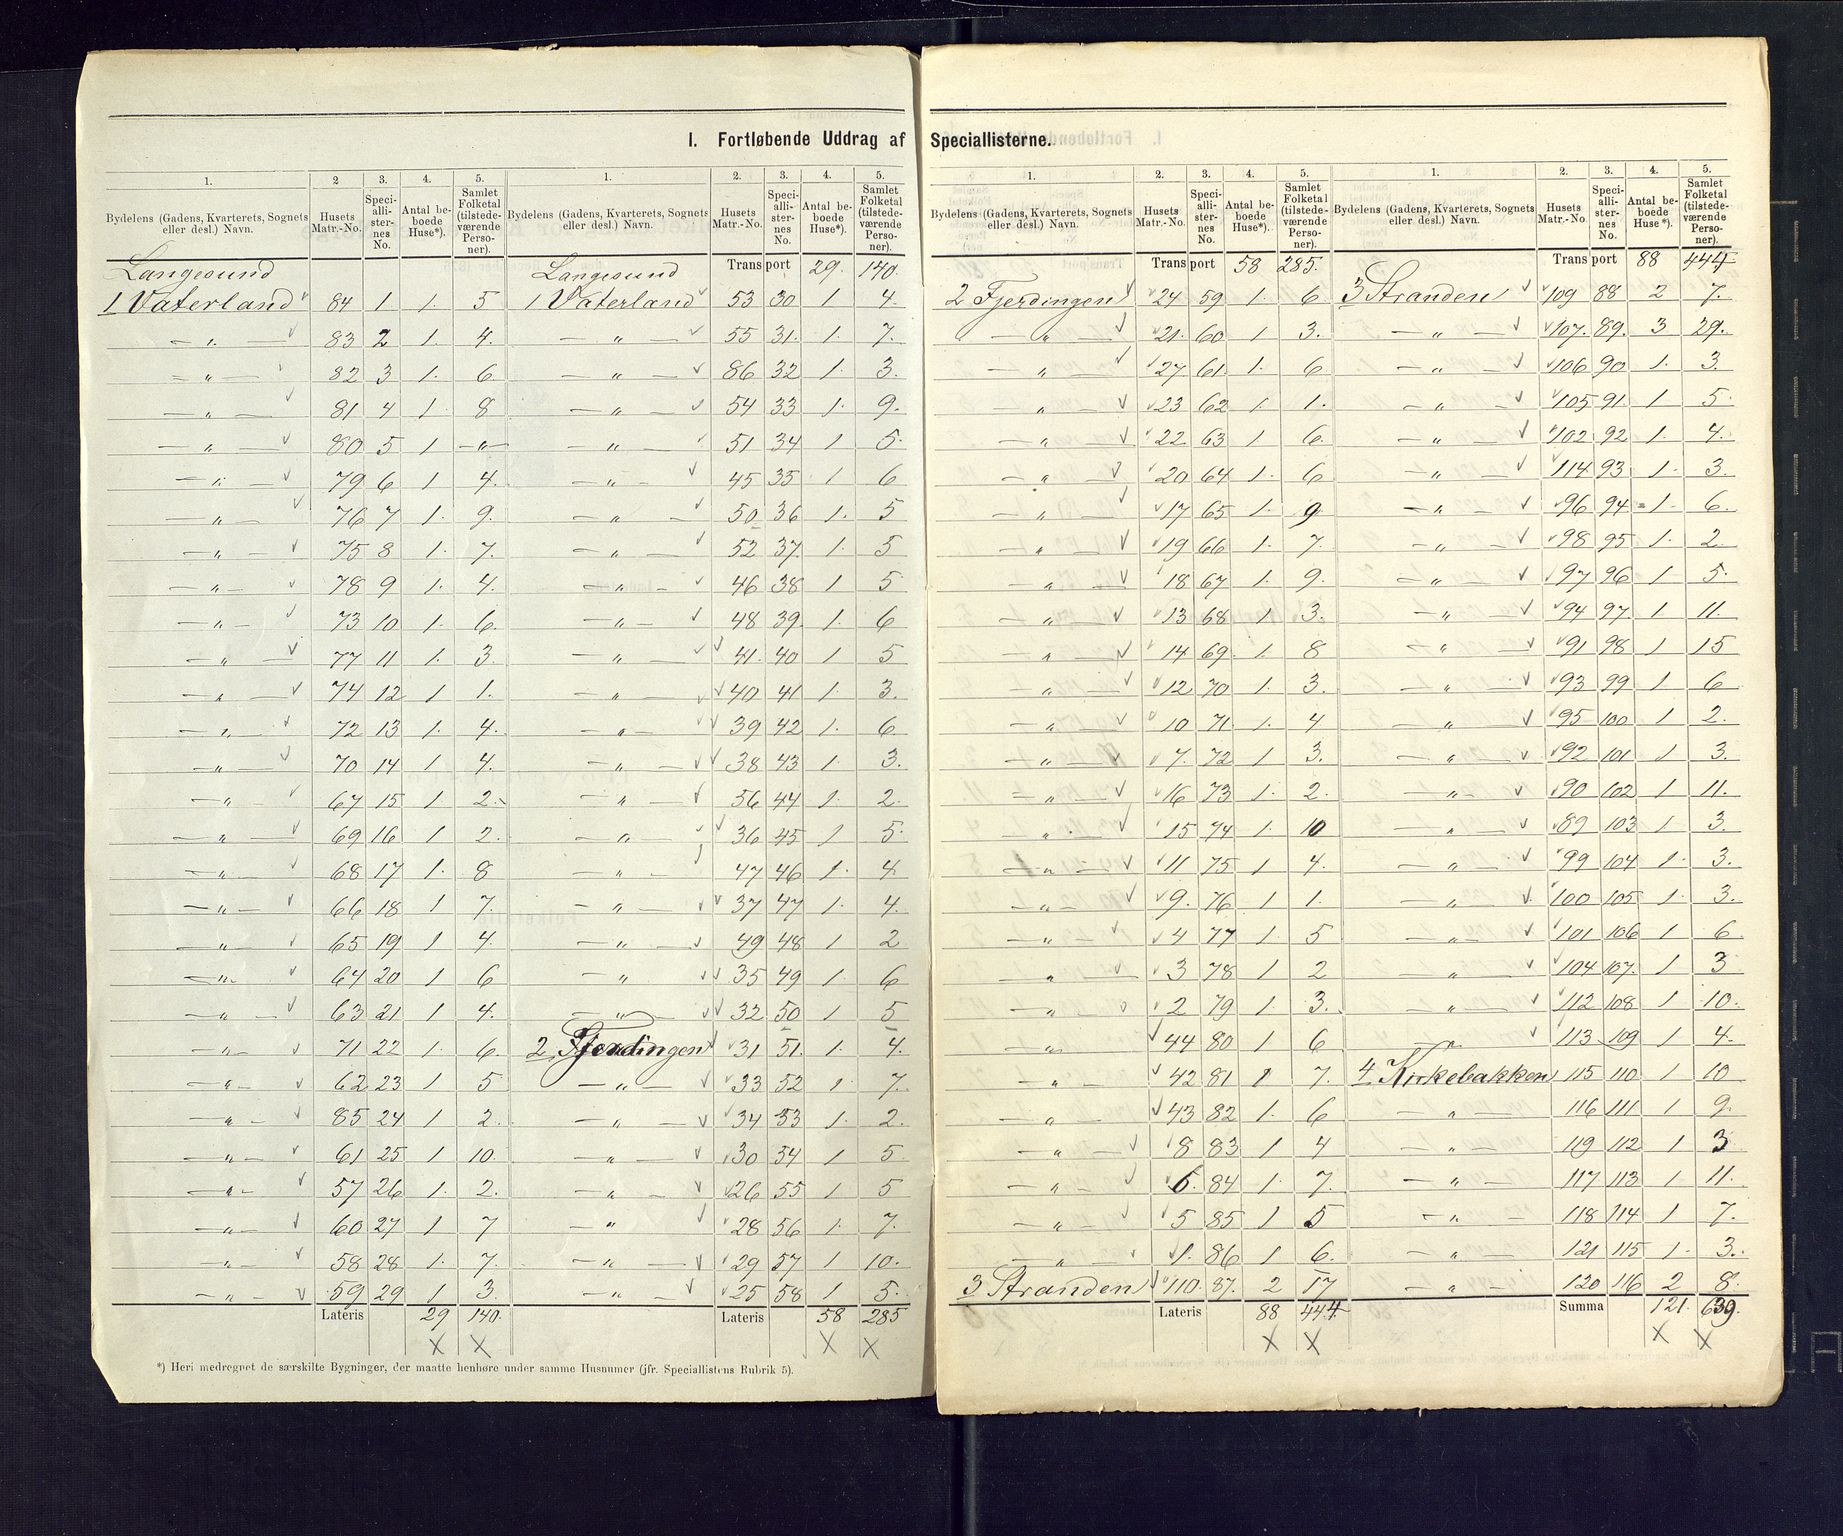 I. Fortløbende Uddrag af Speciallisterne.
1. 2 3. 4. 5.
Bydelens (Gadens, Kvarterets, Sognets eller desl.) Navn. | Husets Matr.-No. | Speciallisternes No. | Antal beboede Huse*). | Samlet Folketal (tilstedeværende Personer).
Langesund
1 Vaterland 84 1 1. 5
— „ — 83 2 1. 4.
— „ — 82 3 1. 6.
— „ — 81 4 1. 8
— „ — 80 5 1 — „ —
— „ — 79 6 1 4.
— „ — 76 7 1. 9.
— „ — 75 8 1. 7.
— „ — 78 9 1. 4.
— „ — 73 10 1. 6.
— „ — 77 11 1. 3.
— „ — 74 12 1 1.
— „ — 72 13 1. 4.
— „ — 70 14 1 4.
— „ — 67 15 1 2.
— „ — 69 16 1 2.
— „ — 68 17 1. 8
— „ — 66 18 1 7.
— „ — 65 19 1 4.
— „ — 64 20 1 6
— „ — 63 21 1 4.
— „ — 71 22 1. 6
— „ — 62 23 1 5
— „ — 85 24 1 2.
— „ — 61 25 1 10.
— „ — 57 26 1. 2.
— „ — 60 27 1 7
— „ — 58 28 1. 7.
— „ — 59 29 1 3.
Lateris 29 140.
X X
1. 2. 3. 4. 5.
Bydelens (Gadens, Kvarterets, Sognets eller desl.) Navn. | Husets Matr.-No. | Speciallisternes No. | Antal beboede Huse*). | Samlet Folketal (tilstedeværende Personer).
Langesund Transport 29. 140.
1 Vaterland 53 30 1 4.
— „ — 55 31. 1. 7.
— „ — 86 32 1. 3.
— „ — 54 33 1. 9.
— „ — 51 34 1 5.
— „ — 45 35 1 6
— „ — 50 36 1. 5
— „ — 52 37. 1. 5
— „ — 46 38 1 5
— „ — 48 39. 1. 6
— „ — 41. 40 1 5
— „ — 40 41 1. 3.
— „ — 39 42 1. 6
— „ — 38 43 1. 3.
— „ — 56 44 1. 2.
— „ — 36 45 1 5.
— „ — 47 46 1. 4
— „ — 37 47 1. 4.
— „ — 49 48 1 2
— „ — 35 49 1. 6
— „ — 32 50 1 5
2 Fjerdingen 31 51. 1. 4.
— „ — 33 52 1 7.
— „ — 34 53 1. 2.
— „ — 30 54 1 5
— „ — 26 55 1 5
— „ — 28 56 1. 7.
— „ — 29 57 1 10.
— „ — 25 58 1 5.
Lateris 58 285
X X
*) Heri medregnet de særskilte Bygninger, der maatte henhøre under samme Husnumer (jfr. Speciallistens Rubrik 5).
1. 2. 3. 4. 5.
Bydelens (Gadens, Kvarterets, Sognets eller desl.) Navn. | Husets Matr.-No. | Speciallisternes No. | Antal beboede Huse*). | Samlet Folketal (tilstedeværende Personer).
Transport 58 285.
2 Fjerdingen 24 59 1. 6
— „ — 21. 60 1 3.
— „ — 27 61 1. 6
— „ — 23 62 1. 1.
— „ — 22 63 1 6.
— „ — 20 64 1. 6
— „ — 17 65 1. 9.
— „ — 19 66 1. 7.
— „ — 18 67 1. 9.
— „ — 13 68 1. 3.
— „ — 14 69. 1. 8
— „ — 12 70 1. 3.
— „ — 10 71 1. 4
— „ — 7. 72 1 3.
— „ — 16 73 1. 2.
— „ — 15 74 1. 10
— „ — 11 75 1 4.
— „ — 9. 76 1 1.
— „ — 4 77 1. 5
— „ — 3 78 1 2
— „ — 2 79 1 3.
„ 44 80 1 6
„ 42 81 1 7.
„ 43 82 1. 6
— „ — 8 83 1 4
— „ — 6. 84 1. 7.
— „ — 5 85 1 5
— „ — 1. 86 1 6.
3 Stranden 110. 87. 2 17
Lateris 88 444
X X
1. 2. 3. 4. 5.
Bydelens (Gadens, Kvarterets, Sognets eller desl.) Navn. | Husets Matr.-No. | Speciallisternes No. | Antal beboede Huse*). | Samlet Folketal (tilstedeværende Personer).
Transport 88 444
3 Stranden 109 88 2 7.
— „ — 107. 89. 3 29.
— „ — 106 90 1. 3.
— „ — 105 91 1 5.
— „ — 102 92 1. 4.
— „ — 114 93 1. 3.
— „ — 96 94 1. 6.
— „ — 98 95 1. 2.
— „ — 97 96 1 5.
— „ — 94 97. 1 11.
— „ — 91 98 1 15
— „ — 93 99 1 6
— „ — 95 100 1 2.
— „ — 92 101 1 3.
— „ — 90 102 1 11.
— „ — 89 103 1 3.
— „ — 99 104 1. 3.
— „ — 100 105 1. 3.
— „ — 101 106 1 6.
— „ — 104 107. 1 3
— „ — 112 108 1 10.
— „ — 113 109 1 4.
4 Kirkebakken 115 110 1 10
— „ — 116 111 1 9.
— „ — 119 112 1 3
— „ — 117 113 1 11.
— „ — 118 114 1 7.
— „ — 121 115 1. 3.
— „ — 120 116 2 8.
Summa 121. 639.
X X